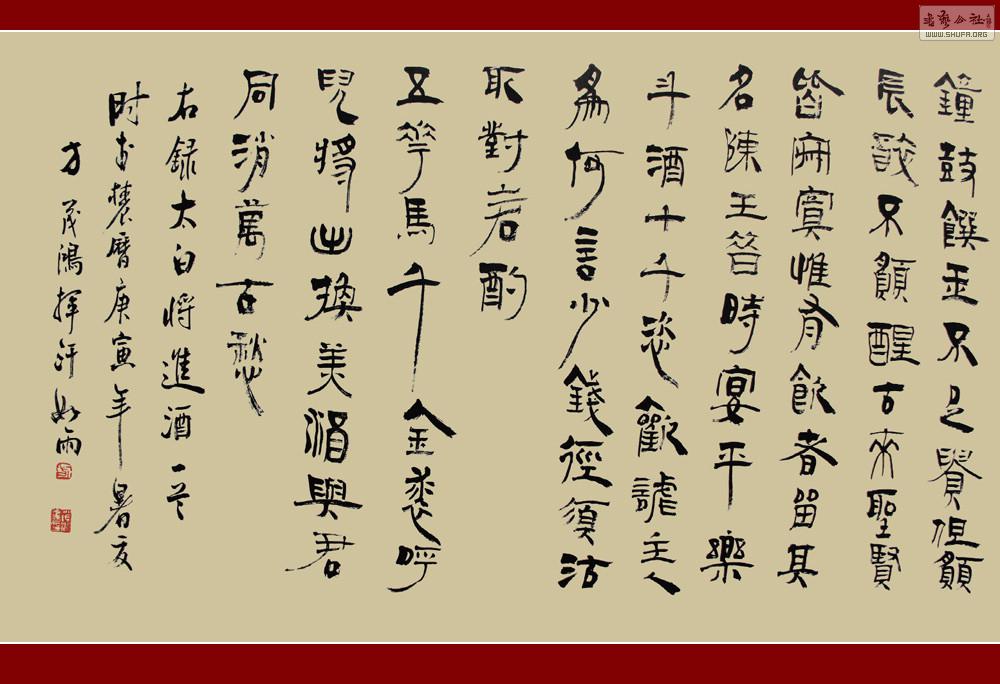 鐘鼓饌玉不足貴但願
長醉不願醒古來聖賢
皆寂寞惟有飲者留其
名陳王昔時宴平樂
斗酒十千恣歡謔主人
爲何言少錢徑須沽
取對君酌
五花馬千金裘呼
兒將出換美酒與君
同消萬古愁
右録太白将進酒一首
时在農曆庚寅年暑夜
方茂鴻揮汗如雨
书藝公社
WWW.SHUFA.ORG